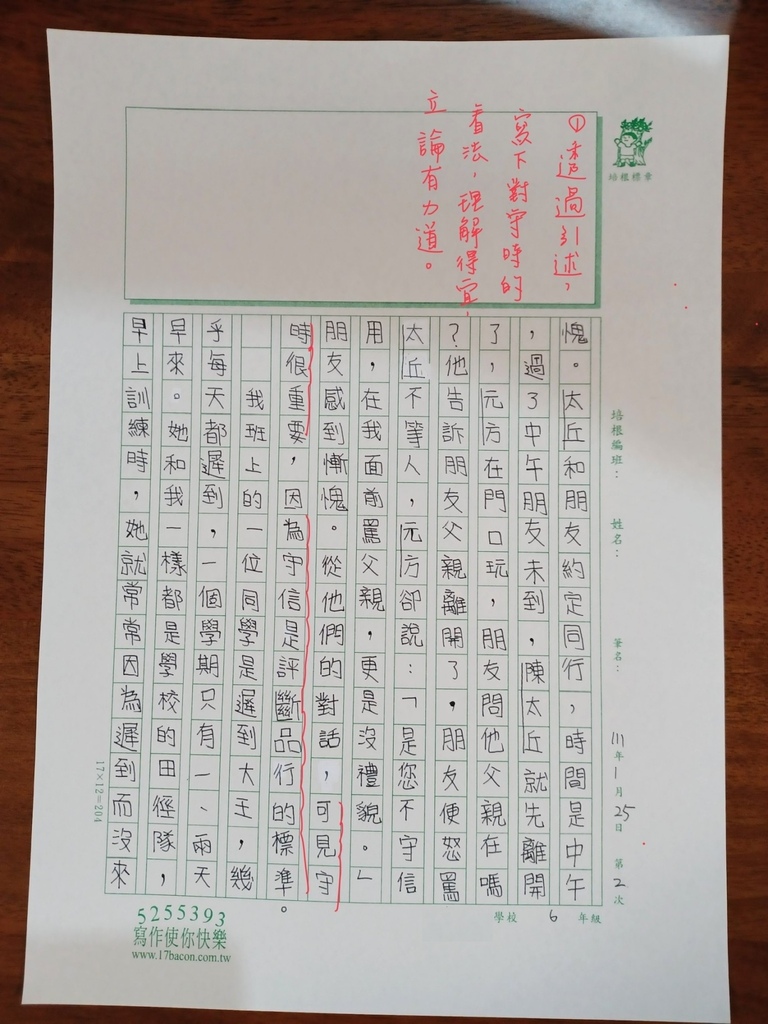 ①透過引述，
寫下對守時的
看法，理解得宜，
立論有力道。
培根標章
培根編班： 姓名： 筆名： 111年1月25日 第2次
愧。太丘和朋友約定同行，時間是中午
，過了中午朋友未到，陳太丘就先離開
了，元方在門口玩，朋友問他父親在嗎
？他告訴朋友父親離開了，朋友便怒罵
太丘不等人，元方卻說：「是您不守信
用，在我面前罵父親，更是沒禮貌。」
朋友感到慚愧。從他們的對話，可見守
時很重要，因為守信是評斷品行的標準。
我班上的一位同學是遲到大王，幾
乎每天都遲到，一個學期只有一、兩天
早來。她和我一樣都是學校的田徑隊，
早上訓練時，她就常常因為遲到而沒來
17×12=204
學校 6 年級
5255393
寫作使你快樂
www.17bacon.com.tw